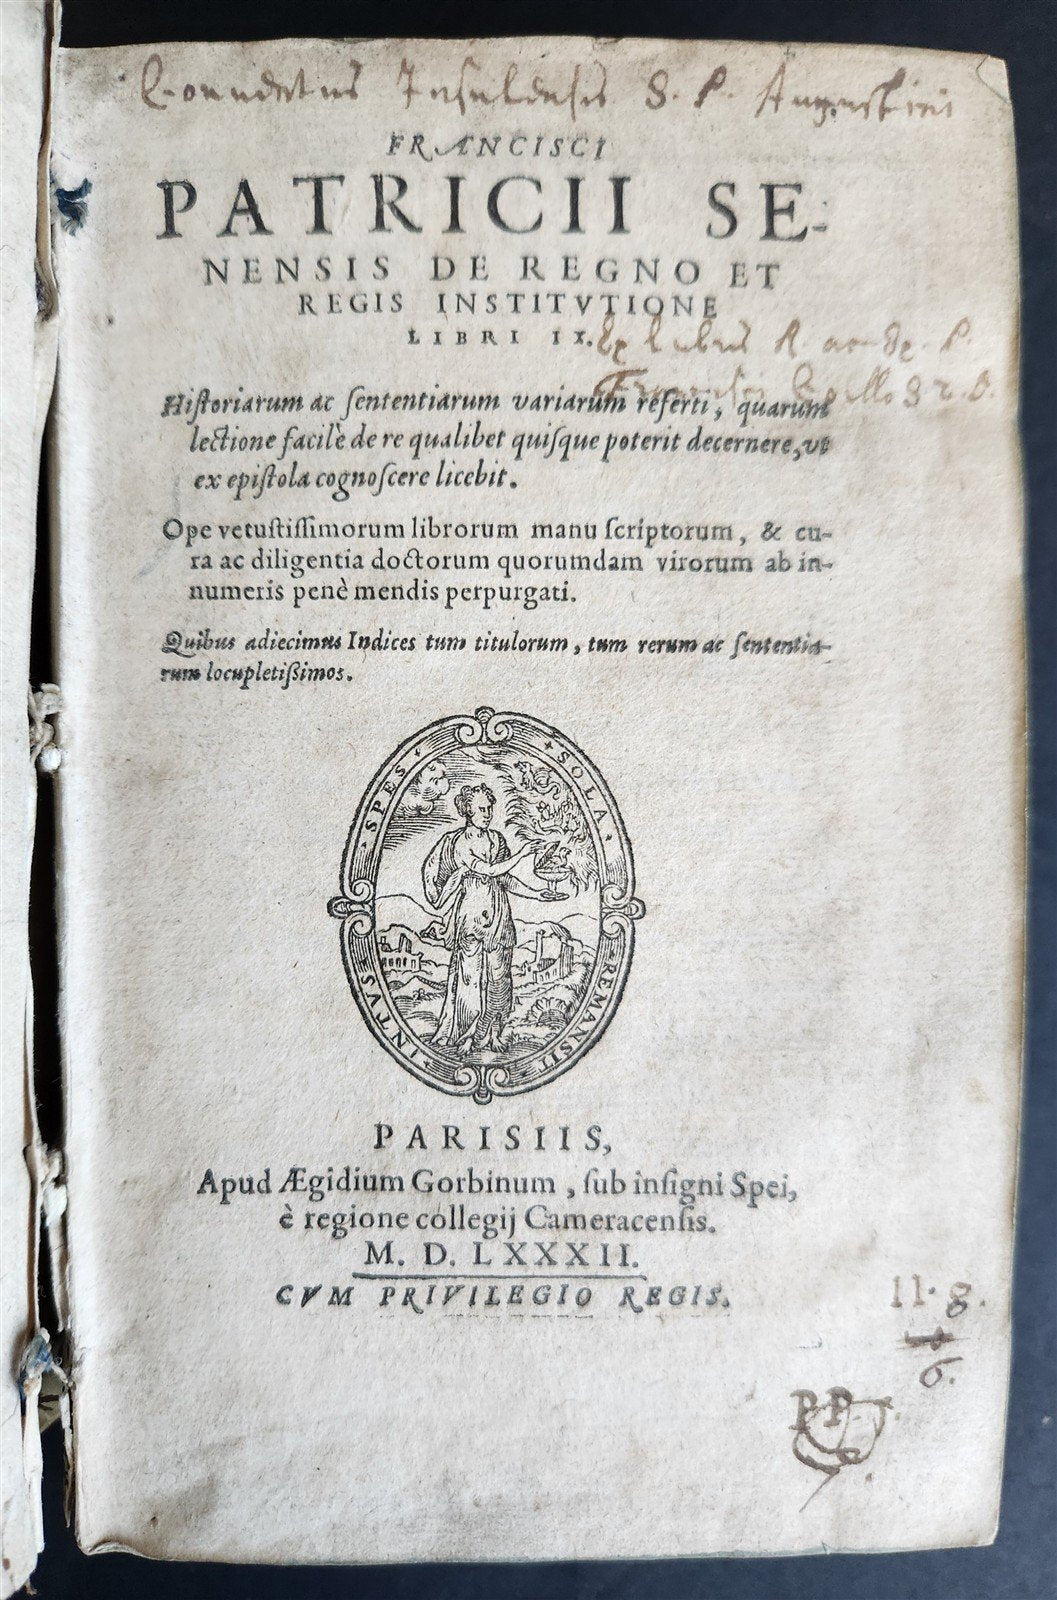 Conventus Insulensis S. P. Augustini
FRANCISCI
PATRICII SE-
NENSIS DE REGNO ET
REGIS INSTITVTIONE
LIBRI IX.
Ex libris R. ac
Hiſtoriarum ac ſententiarum variarum referti, quarum
lectione facilè de re qualibet quiſque poterit decernere, vt
ex epiſtola cognoſcere licebit.
Ope vetuſtiſſimorum librorum manu ſcriptorum, & cu-
ra ac diligentia doctorum quorumdam virorum ab in-
numeris penè mendis perpurgati.
Quibus adiecimus Indices tum titulorum, tum rerum ac ſententia-
rum locupletiſſimos.
SPES SOLA REMANSIT INTVS
PARISIIS,
Apud Ægidium Gorbinum, ſub inſigni Spei,
è regione collegij Cameracenſis.
M. D. LXXXII.
CVM PRIVILEGIO REGIS.
11. g.
6.
PP.